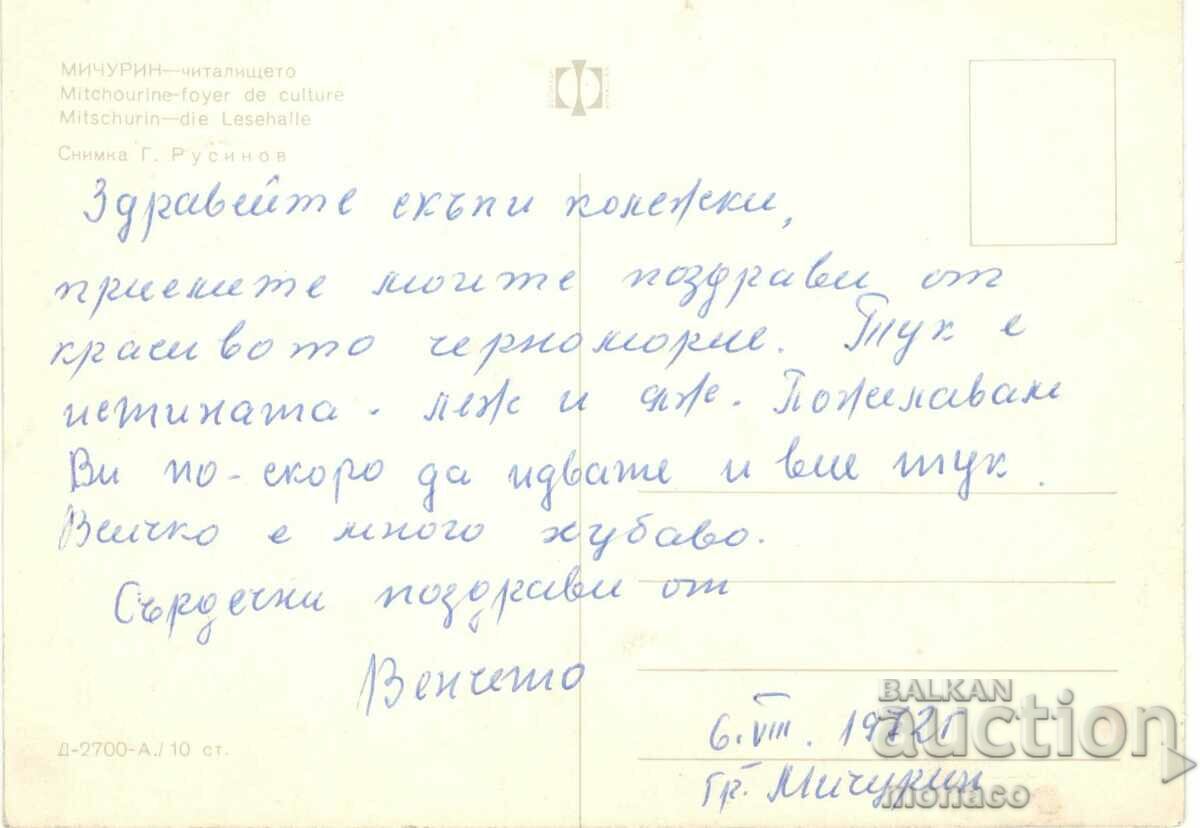 МИЧУРИН—читалището
Mitchourine-foyer de culture
Mitschurin—die Lesehalle
Снимка Г. Русинов
Здравейте скъпи колежки,
приемите моите поздрави от
красивото черноморие. Тук е
истината - леж и яж. Пожелавам
Ви по-скоро да идвате и вие тук.
Всичко е много хубаво.
Сърдечни поздрави от
Венчето
6.VIII. 1972г
гр. Мичурин
Д-2700-А./10 ст.
BALKAN
auction
monaco